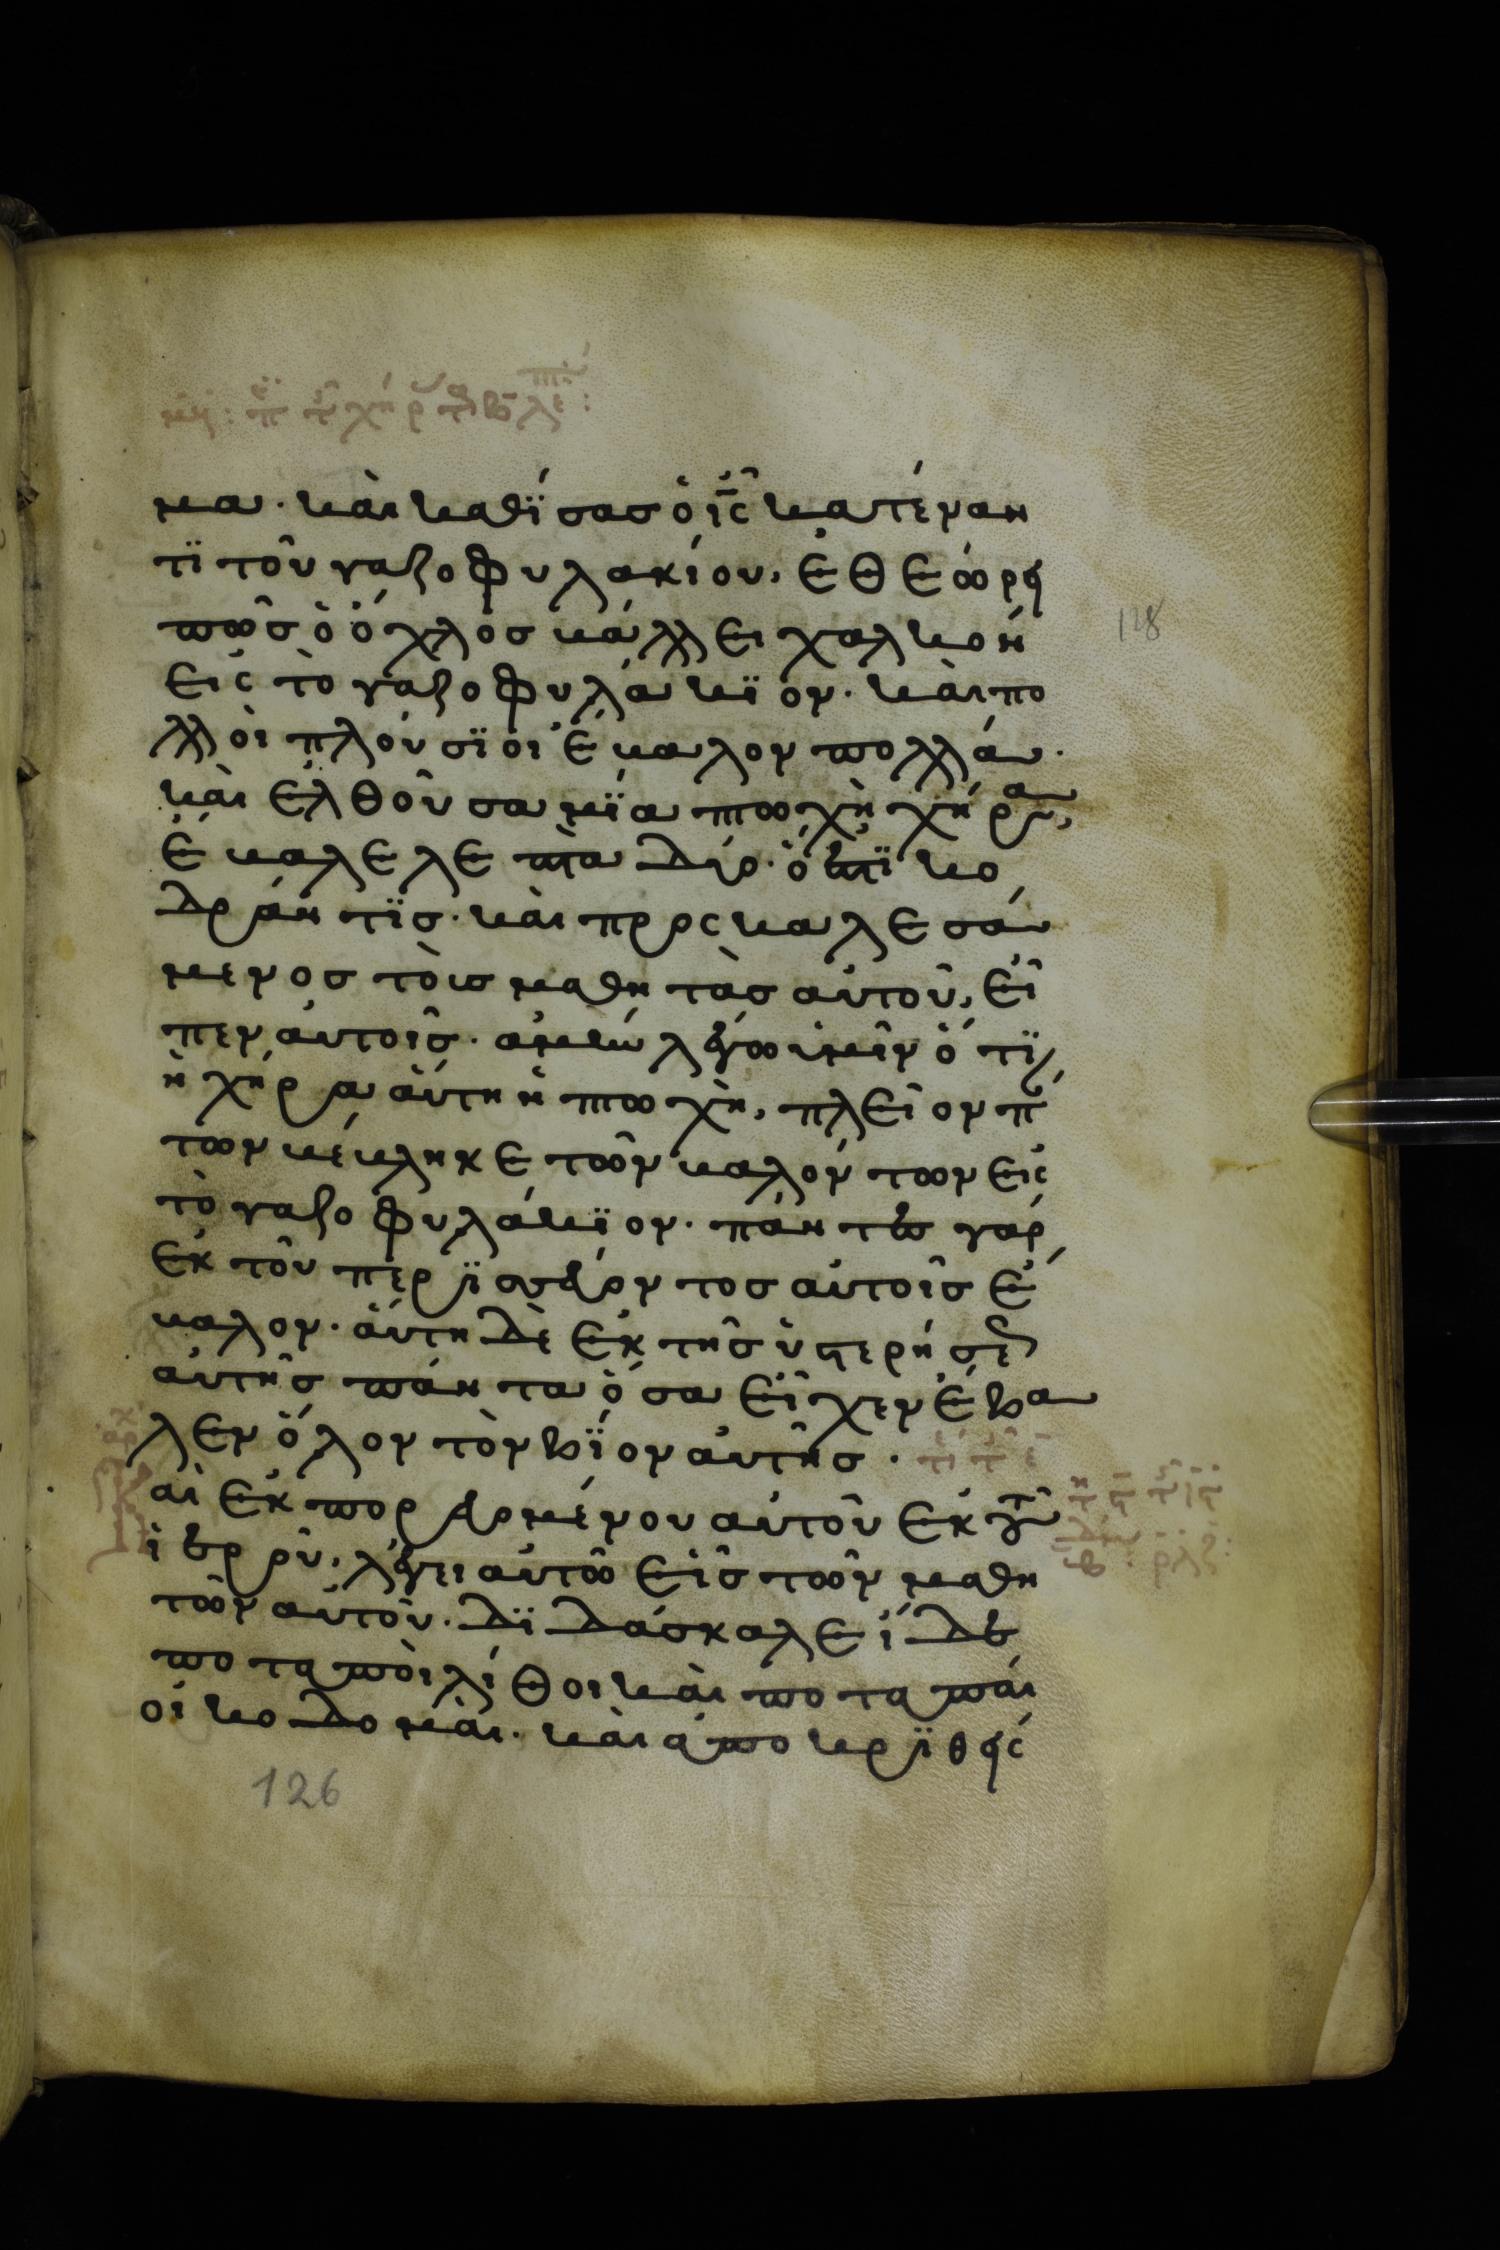 μα· καὶ καθΐσασ ὁ ις̅ κατέναν
τϊ τοῦ γαζοφυλακίου, ἐθεώρει
πῶσ ὁ ὄχλοσ βάλλει χαλκὸν
εἰς τὸ γαζοφυλάκϊον· καὶ πο
λλοὶ πλούσϊοι ἔβαλον πολλά·
καὶ ἐλθοῦσα μΐα πτωχὴ χήρα,
ἔβαλε λεπτὰ δύο· ὅ ἐστϊ κο
δράντϊσ· καὶ προςκαλεσά
μενοσ τοὶσ μαθητὰσ αὐτοῦ, εἶ
πεν αὐτοῖσ· ἀμὴν λέγω ὑμῖν ὅτϊ
ἡ χήρα αὕτη ἡ πτωχὴ, πλεῖον π
των βέβληκε τῶν βαλόντων εἰς
τὸ γαζοφυλάκϊον· πάντες γὰρ
ἐκ τοῦ περϊσσεύοντοσ αὐτοῖσ ἔ
βαλον· αὕτη δὲ ἐκ τῆσ ὑστερήσε
αὐτῆσ πάντα ὅσα εἶχεν ἔβα
λεν ὅλον τὸν βΐον αὐτῆσ·
αὶ ἐκπορευομένου αὐτοῦ ἐκ τοῦ
ἱεροῦ, λέγει αὐτῶ εἷσ τῶν μαθη
τῶν αὐτοῦ· δϊδάσκαλε ἴδε
ποταποὶ λίθοι καὶ ποταπαὶ
οἰκοδομαί· καὶ ἀποκρϊθεὶς
126